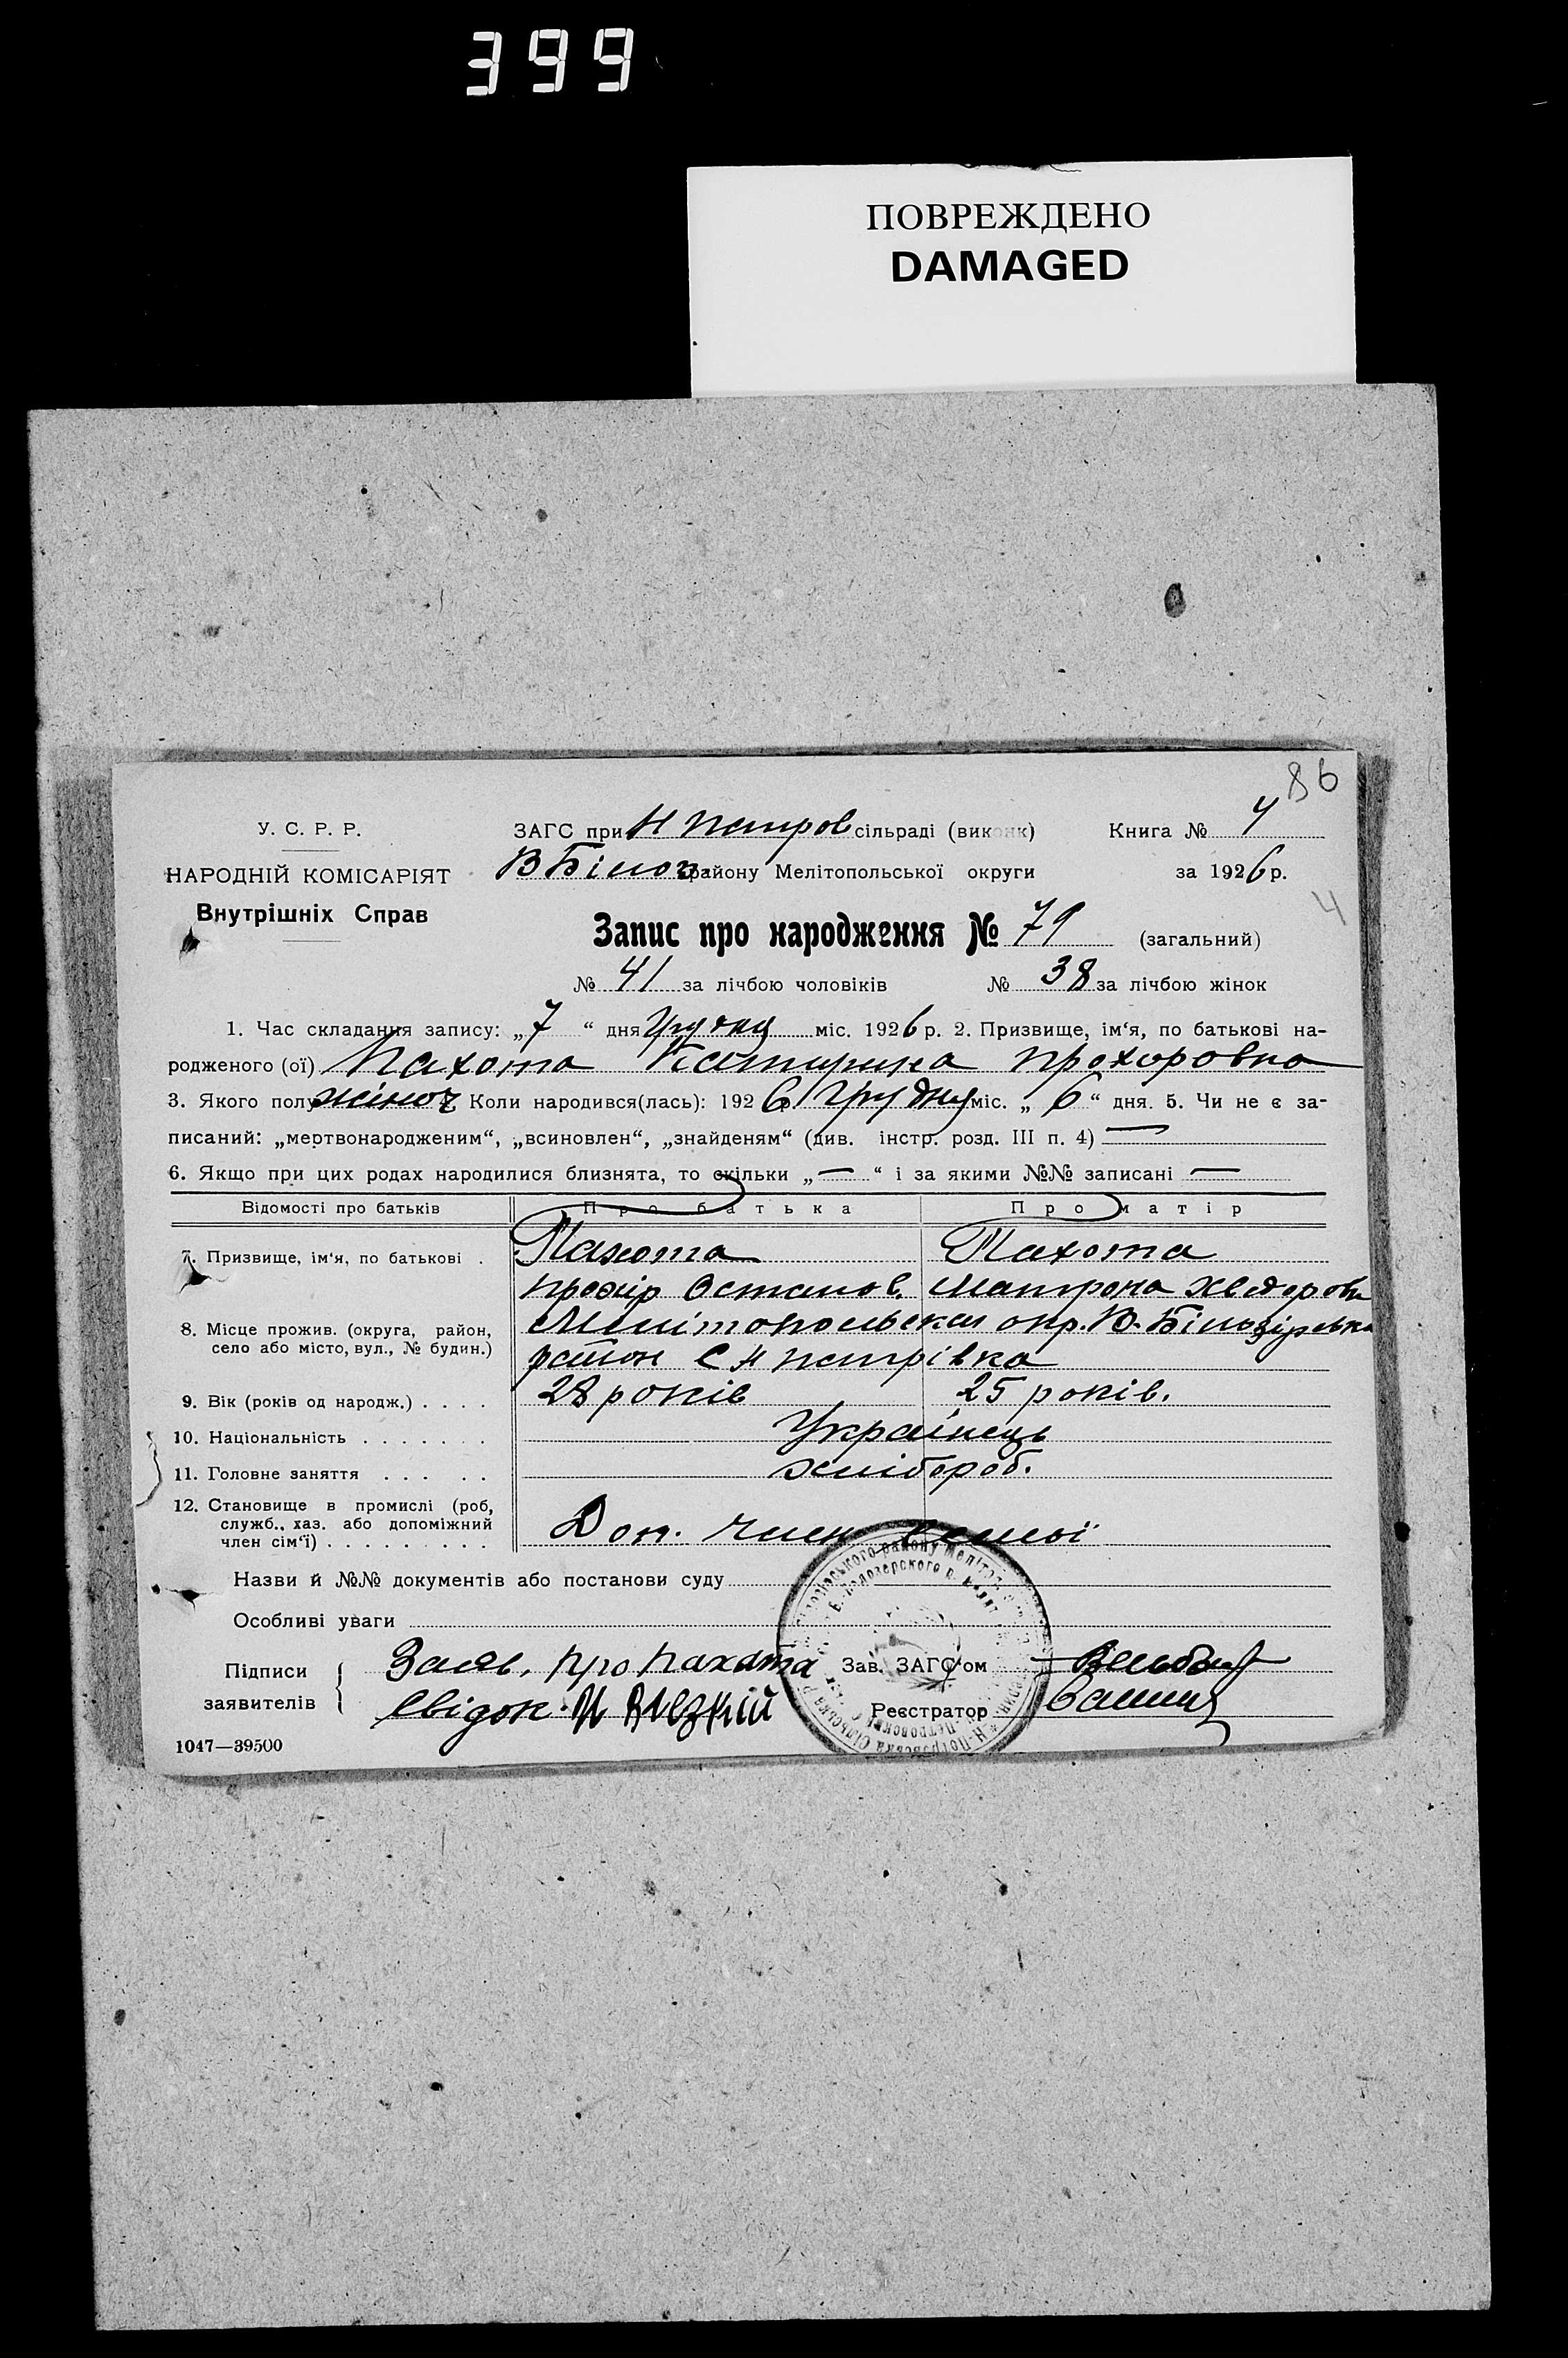 399
ПОВРЕЖДЕНО
DAMAGED
86
У. С. Р. Р.
ЗАГС при Н Петров сільраді (виконк)
Книга № 4
НАРОДНІЙ КОМІСАРІЯТ
В Білоз. району Мелітопольської округи
за 1926 р.
Внутрішніх Справ
4
Запис про народження № 79 (загальний)
№ 41 за лічбою чоловіків № 38 за лічбою жінок
1. Час складання запису: „7“ дня Грудня міс. 1926 р. 2. Призвище, ім‘я, по батькові на-
родженого (ої) Пахота Катирина Прохоровна
3. Якого полу жіноч Коли народився(лась): 1926 Грудня міс. „6“ дня. 5. Чи не є за-
писаний: „мертвонародженим“, „всиновлен“, „знайденям“ (див. інстр. розд. III п. 4) —
6. Якщо при цих родах народилися близнята, то скільки „—“ і за якими №№ записані —
Відомості про батьків Про батька Про матір
7. Призвище, ім‘я, по батькові . Пахота Пахота
Прохір Остапов. Матрона Хведоровн
8. Місце прожив. (округа, район, село або місто, вул., № будин.) Мелітопольская окр. В. Білозірська
район С Н петрівка
9. Вік (років од народж.) . . . . 28 років 25 років.
10. Національність . . . . . . . Українець
11. Головне заняття . . . . . хлібороб.
12. Становище в промислі (роб,
служб., хаз. або допоміжний
член сім‘ї) . . . . . . . . . Доп. член семьї
Назви й №№ документів або постанови суду
Особливі уваги
Підписи заявителів { Заяв. Про Пахата
Зав. ЗАГС‘ом
Свідок. И
Реєстратор
1047—39500